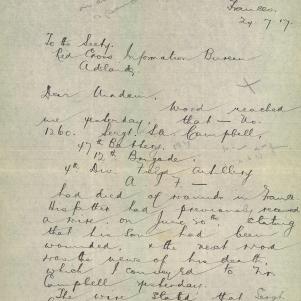 24.7.17.
To the Secty.
Red Cross Information Bureau
Adelaide
Dear Madam,
Word reached
me yesterday, that — No.
1260. Sergt. S.A. Campbell,
47th Battery,
12th Brigade,
4th Div. Field Artillery
A I F —
had died of wounds in France
His father had previously received
a wire, on June 30th stating
that his son had been
wounded, & the next word
was the news of his death,
which I conveyed to Mr
Campbell yesterday.
The wire stated that Sergt